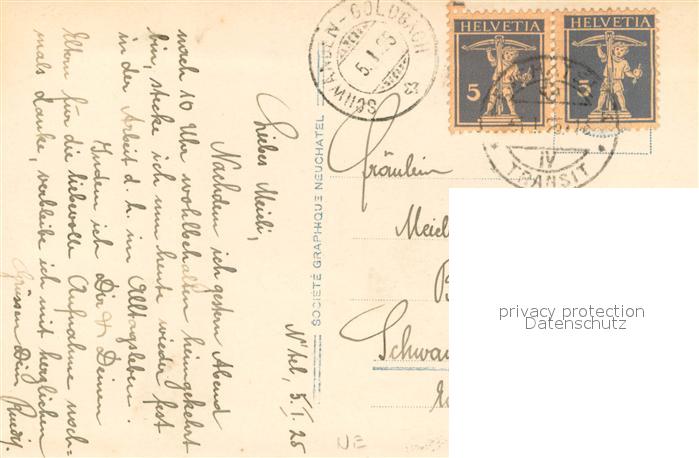 N'tel, 5/I. 25
Liebes Meili,
Nachdem ich gestern Abend
nach 10 Uhr wohlbehalten heimgekehrt
bin, stecke ich nun heute wieder fest
in der Arbeit d. h. im Alltagsleben.
Indem ich Dir & Deinen
Eltern für die liebevolle Aufnahme noch-
mals danke, verbleibe ich mit herzlichen
Grüssen Dein Ruedi.
SOCIÉTÉ GRAPHIQUE NEUCHATEL
SCHWANDEN-GOLDBACH
5. I. 25
HELVETIA
5
HELVETIA
5
IV
TRANSIT
Fräulein
Schwa
NE
privacy protection
Datenschutz